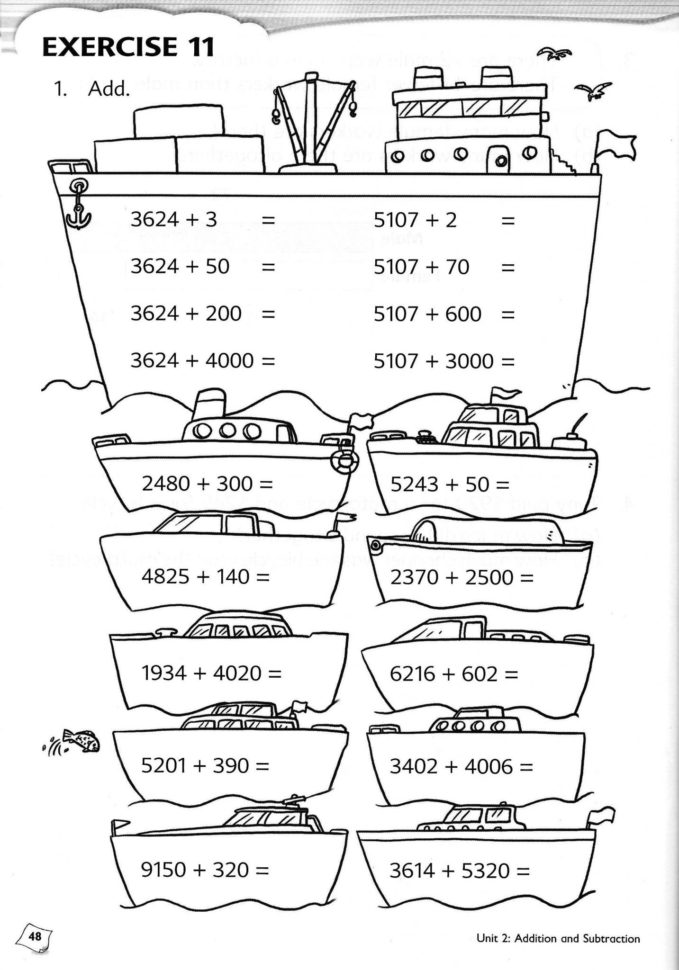 EXERCISE 11
1. Add.
3624 + 3 =
5107 + 2 =
3624 + 50 =
5107 + 70 =
3624 + 200 =
5107 + 600 =
3624 + 4000 =
5107 + 3000 =
2480 + 300 =
5243 + 50 =
4825 + 140 =
2370 + 2500 =
1934 + 4020 =
6216 + 602 =
5201 + 390 =
3402 + 4006 =
9150 + 320 =
3614 + 5320 =
48
Unit 2: Addition and Subtraction